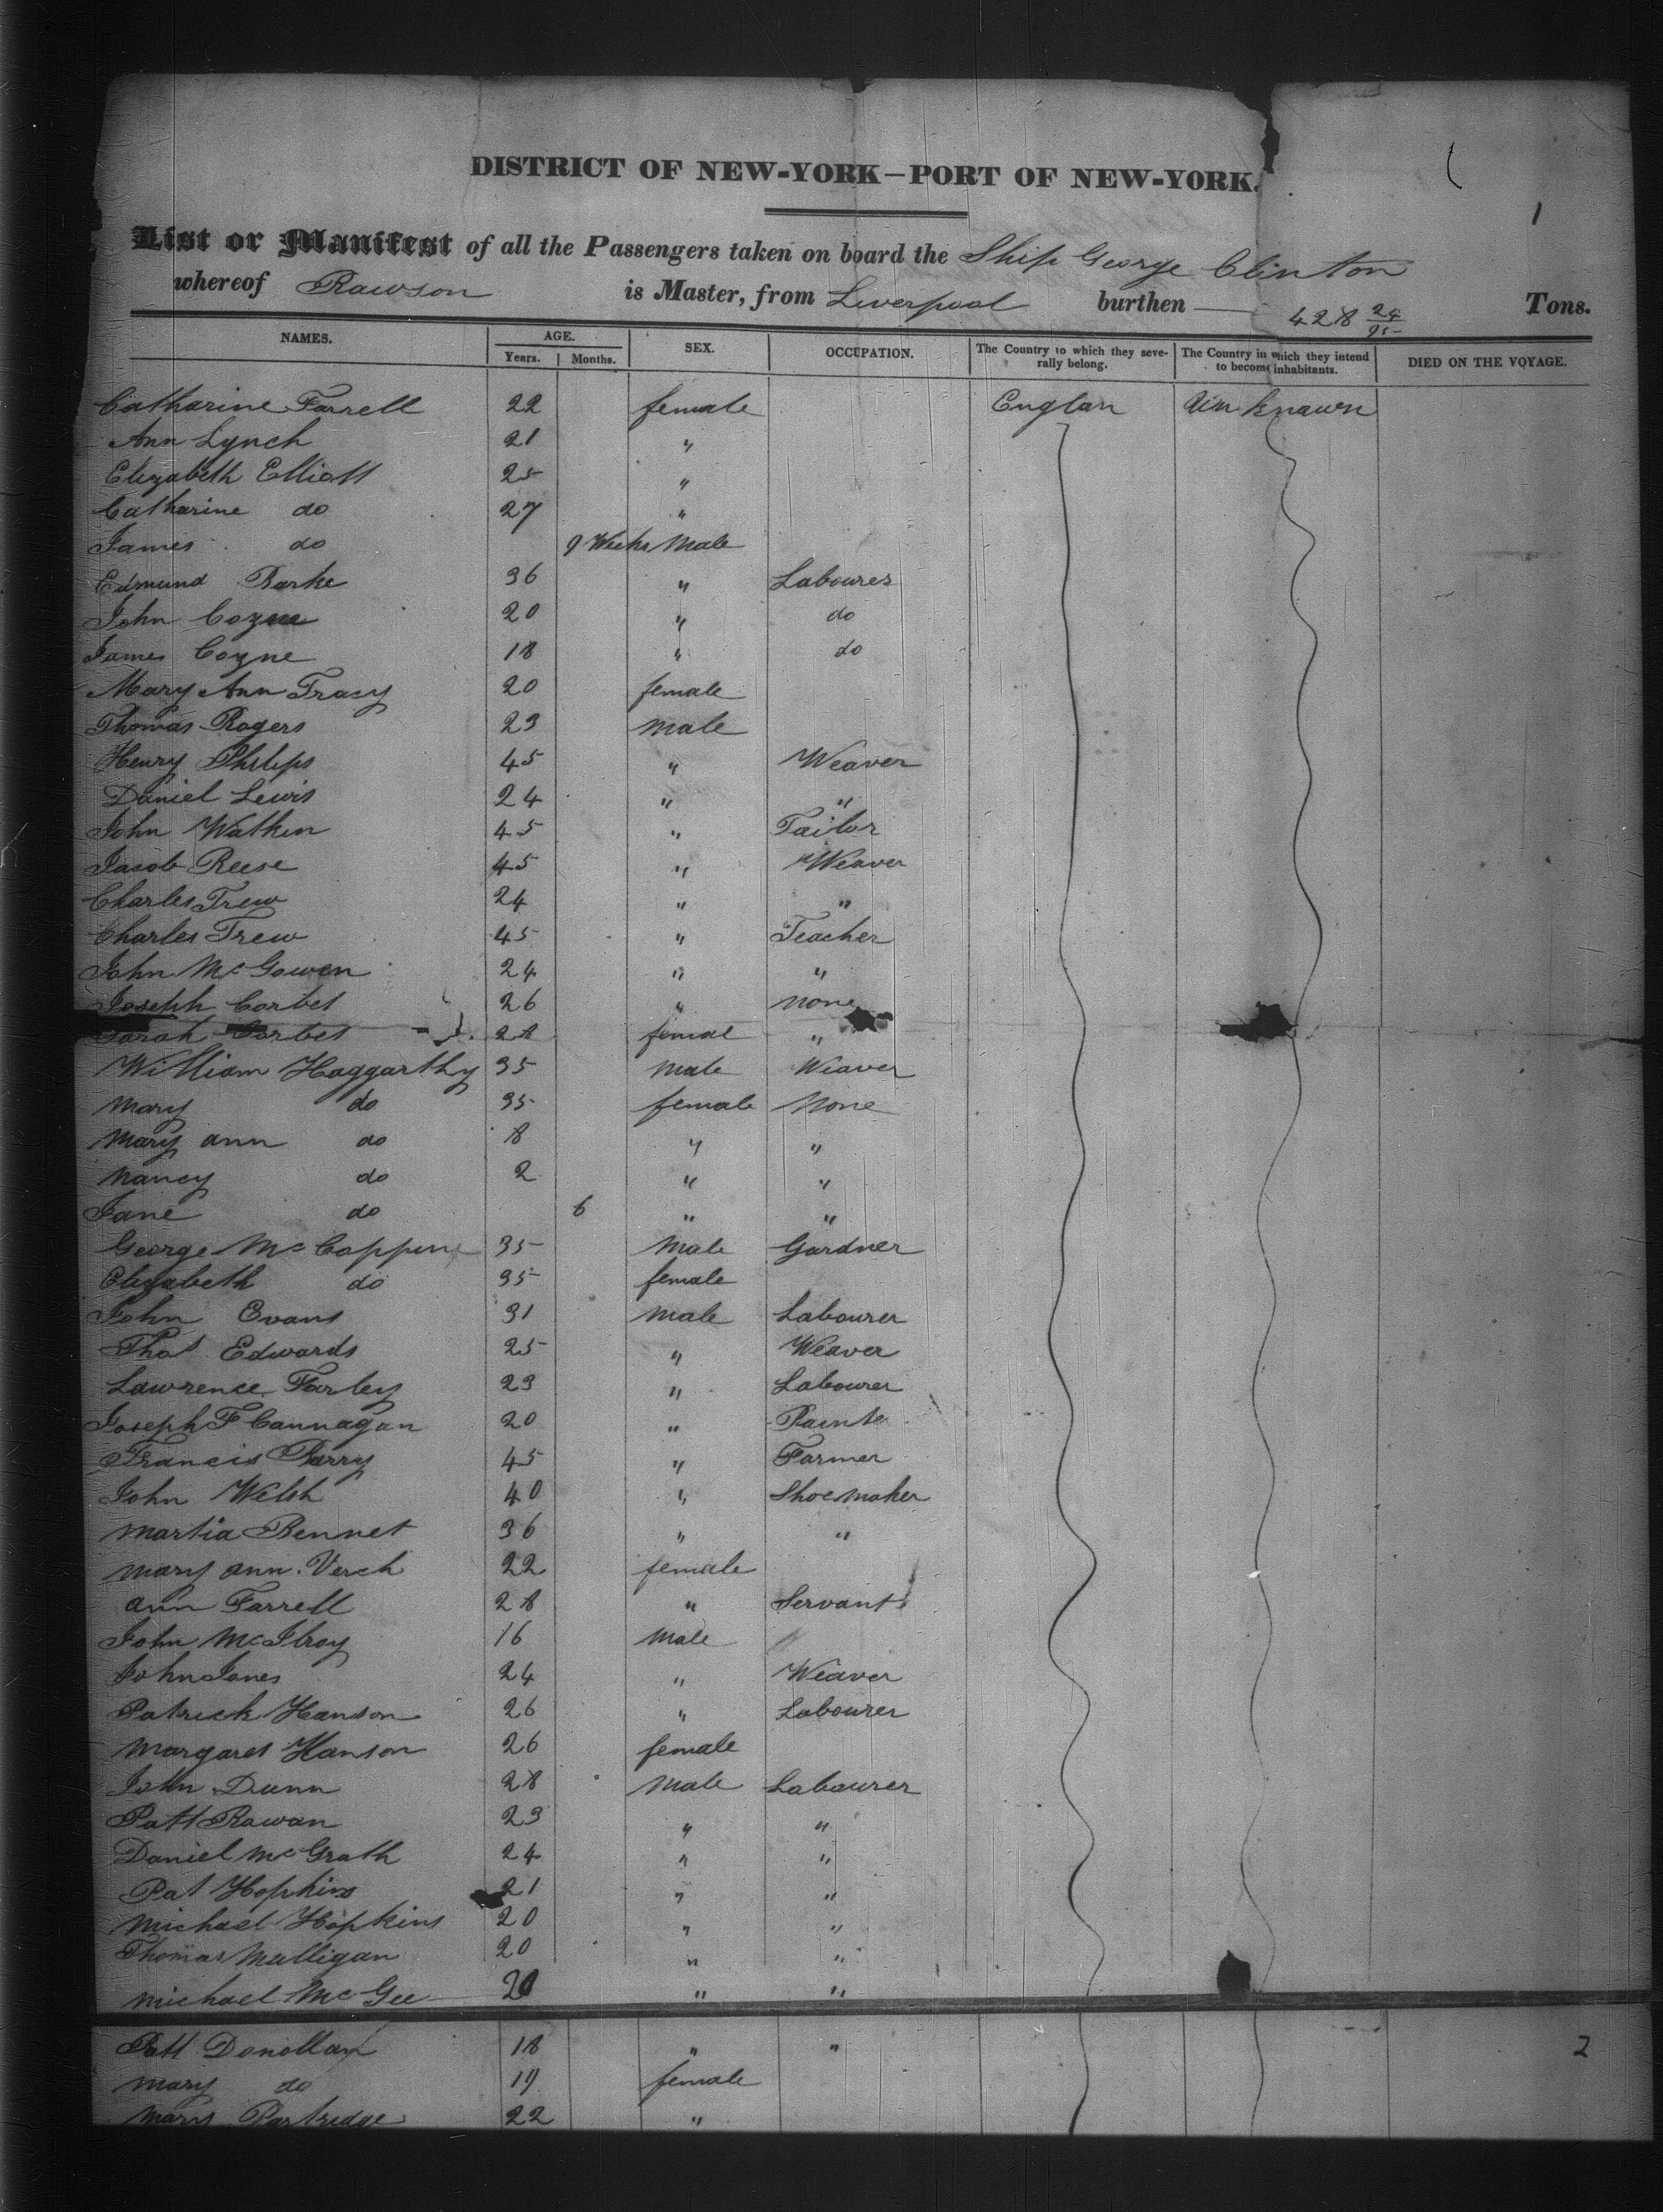 1
DISTRICT OF NEW-YORK—PORT OF NEW-YORK.
List or Manifest of all the Passengers taken on board the Ship George Clinton
whereof Rawson is Master, from Liverpool burthen — 428 24/95 Tons.
NAMES. AGE. Years. Months. SEX. OCCUPATION. The Country to which they severally belong. The Country in which they intend to become inhabitants. DIED ON THE VOYAGE.
Catharine Farrell 22 female Englan Unknawn
Ann Lynch 21 "
Elizabeth Elliott 25 "
Catharine do 27 "
James do 9 Weeks Male
Edmund 36 " Labourer
John Coyne 20 " do
James Coyne 18 " do
Mary Ann Tracy 20 female
Thomas Rogers 23 male
Henry Philips 45 " Weaver
Daniel Lewis 24 " "
John Watkin 45 " Tailor
Jacob Reese 45 " Weaver
Charles Trew 24 " "
Charles Trew 45 " Teacher
John McGowen 24 " "
Joseph Corbet 26 " none
Sarah Corbet 28 femal "
William Haggarthy 35 Male Weaver
Mary do 35 female None
Mary ann do 8 " "
Nancy do 2 " "
Jane do 6 " "
George McCoppin 35 Male Gardner
Elizabeth do 35 female
John Evans 31 Male Labourer
Thos Edwards 25 " Weaver
Lawrence Farley 23 " Labourer
Joseph F Cannagan 20 " Painte
Francis Parry 45 " Farmer
John Welsh 40 " Shoemaker
Martin Bennet 36 " "
Mary ann 22 female
Ann Farrell 28 " Servant
John McIlroy 16 Male "
John Jones 24 " Weaver
Patrick Hanson 26 " Labourer
Margaret Hanson 26 female
John Dunn 28 Male Labourer
Patt Rowan 23 " "
Daniel McGrath 24 " "
Pat Hopkins 21 " "
Michael Hopkins 20 " "
Thomas Mulligan 20 " "
Michael McGee 20 " "
Patt Donollan 18 " " 2
Mary do 19 female
Mary Partridge 22 "